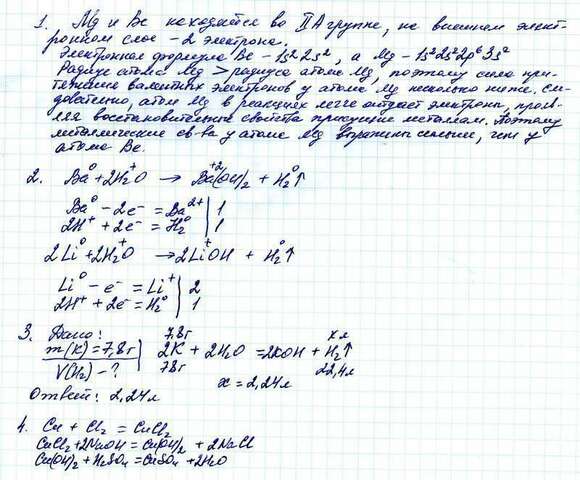 1. Mg и Be находятся во II A группе, на внешнем элект-
ронном слое - 2 электрона.
Электронная формула Be - 1s² 2s², а Mg - 1s² 2s² 2p⁶ 3s²
Радиус атома Mg > радиуса атома Mg, поэтому сила при-
тяжения валентных электронов у атома Mg несколько ниже, сле-
довательно, атом Mg в реакциях легче отдает электроны, прояв-
ляя восстановительные свойства присущие металлам. Поэтому
металлические св-ва у атома Mg выражены сильнее, чем у
атома Be.
2. Ba⁰ + 2H₂⁺O → Ba⁺²(OH)₂ + H₂⁰↑
Ba⁰ - 2e⁻ = Ba²⁺ | 1
2H⁺ + 2e⁻ = H₂⁰ | 1
2Li⁰ + 2H₂⁺O → 2Li⁺OH + H₂⁰↑
Li⁰ - e⁻ = Li⁺ | 2
2H⁺ + 2e⁻ = H₂⁰ | 1
3. Дано: 7,8г x л
m(K) = 7,8г 2K + 2H₂O = 2KOH + H₂↑
V(H₂) - ? 78г 22,4л
x = 2,24л
Ответ: 2,24л
4. Cu + Cl₂ = CuCl₂
CuCl₂ + 2NaOH = Cu(OH)₂ + 2NaCl
Cu(OH)₂ + H₂SO₄ = CuSO₄ + 2H₂O